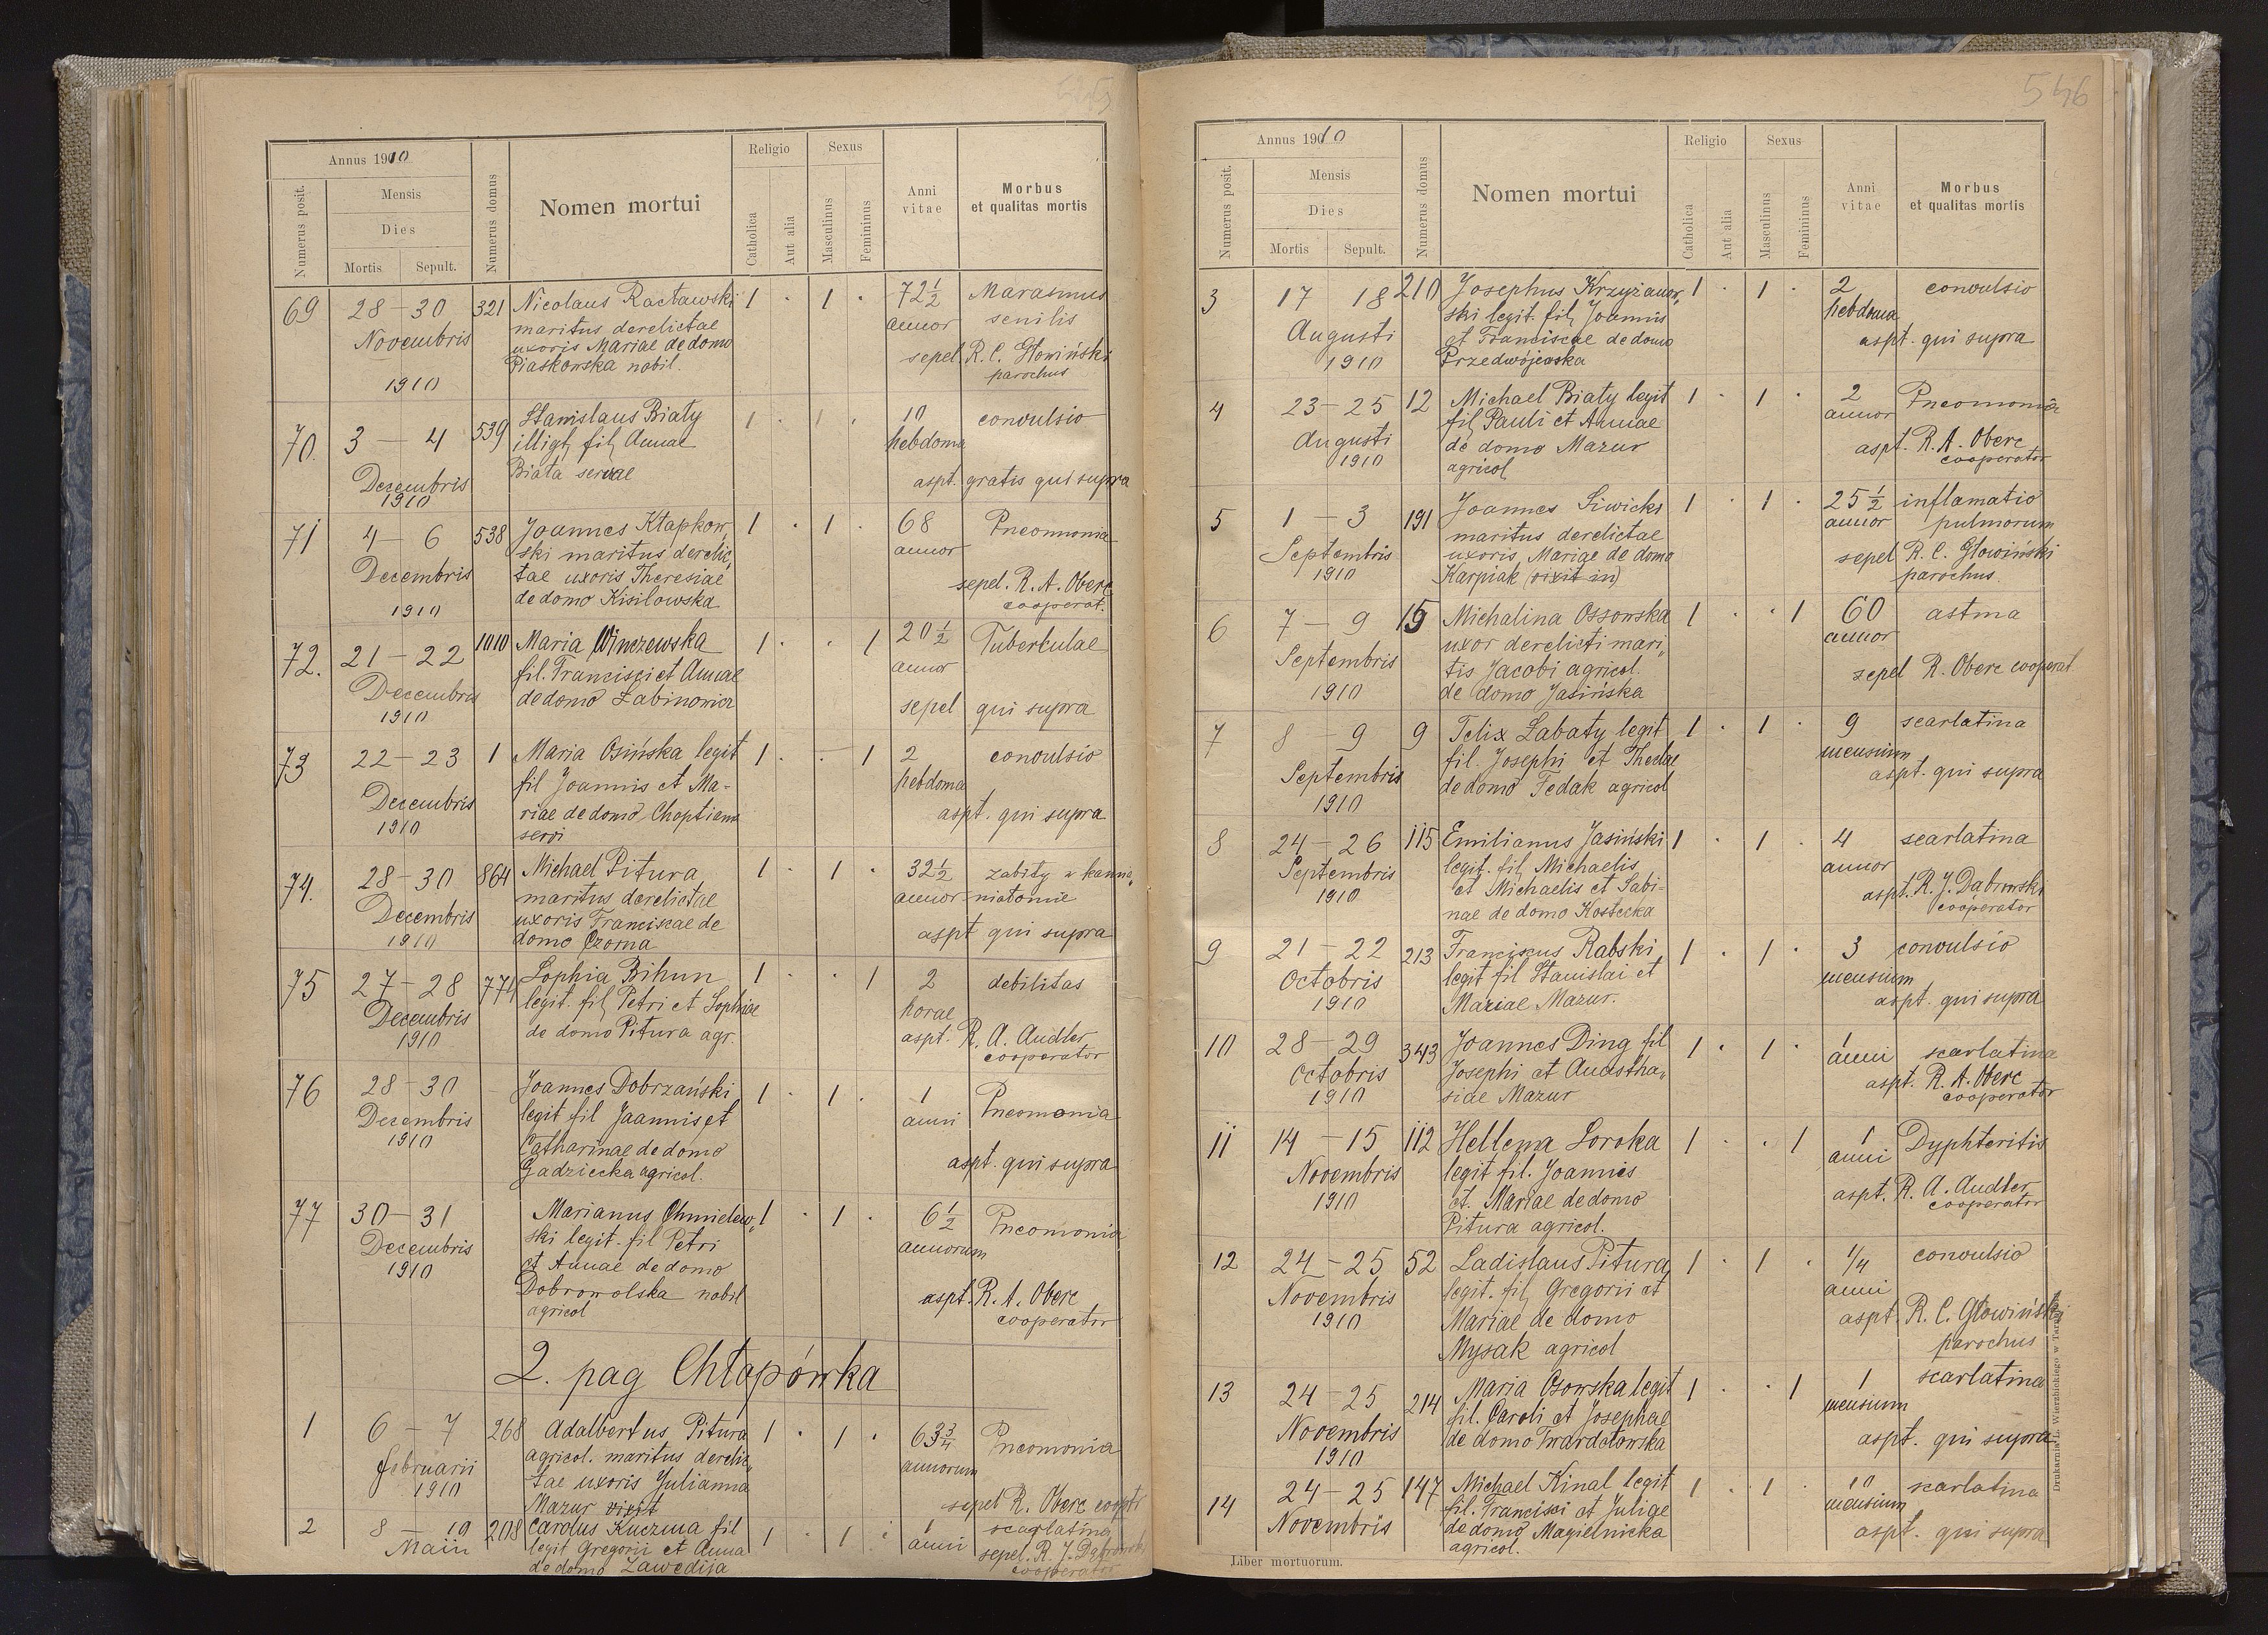 545
Annus 1910
Numerus posit.
Mensis
Dies
Mortis
Sepult.
Numerus domus
Nomen mortui
Religio
Catholica
Aut alia
Sexus
Masculinus
Femininus
Anni
vitae
Morbus
et qualitas mortis
69 28 – 30 321 Nicolaus Racławski 1 · 1 · 72½ Marasmus
Novembris maritus derelictae annor senilis
uxoris Mariae de domo sepel R. C. Głowiński
1910 Piaskowska nobil. parochus
70. 3 — 4 539 Stanislaus Biały 1 · 1 · 10 convulsio
illigt, fil, Annae hebdoma
Decembris Biała servae aspt. gratis qui supra
1910
71 4 – 6 538 Joannes Kłapkow, 1 · 1 · 68 Pneomonia
ski maritus derelic, annor
Decembris tae uxoris Theresiae sepel. R. A. Oberc
1910 de domo Kisilowska cooperat.
72. 21 – 22 1010 Maria Winczewska 1 · · 1 20½ Tuberkulae
fil. Francisci et Annae annor
Decembris de domo Łabinowicz sepel qui supra
1910
73 22 – 23 1 Maria Osińska legit 1 · · 1 2 convulsio
fil Joannis et Ma- hebdoma
Decembris riae de domo aspt. qui supra
1910 servi
74. 28 – 30 864 Michael Pitura 1 · 1 · 32½ zabity w kamie,
maritus derelictae annor niołomie
Decembris uxoris Franciscae de aspt qui supra
1910 domo Czoma
75 27 – 28 774 Sophia Bihun 1 · · 1 2 debilitas
legit. fil, Petri et Sophiae horae
Decembris de domo Pitura agr. aspt. R. A. Audler
1910 cooperator
76 28 – 30 Joannes Dobrzański 1 · 1 · 1 Pneomonia
legit fil Joannis et anni
Decembris Catharinae de domo
1910 Gadziecka agricol. aspt. qui supra
77 30 – 31 Marianus Chmielew, 1 · 1 · 6½ Pneomonia
Decembris ski legit. fil Petri annorum
1910 et Annae de domo
Dobrowolska nobil aspt. R. A. Oberc
agricol cooperator
2. pag Chłapówka
1 6 – 7 268 Adalbertus Pitura 1 · 1 · 63¾ Pneomonia
februarii agricol. maritus derelic, annorum
1910 tae uxoris Julianna
Mazur vixit sepel R. Oberc cooptr
2 8 – 10 208 Carolus Kuczma fil 1 · 1 · 1 scarlatina
Maii legit Gregorii et Anna anni sepel. R. J. Dąbrowski
de domo Zawedija cooperator
546
Annus 1910
Numerus posit.
Mensis
Dies
Mortis
Sepult.
Numerus domus
Nomen mortui
Religio
Catholica
Aut alia
Sexus
Masculinus
Femininus
Anni
vitae
Morbus
et qualitas mortis
3 17 18 210 Josephus Krzyżanow, 1 · 1 · 2 convulsio
Augusti ski legit. fil, Joannis hebdoma
et Franciscae de domo aspt. qui supra
1910 Przedwojewska
4 23 – 25 12 Michael Biały legit 1 · 1 · 2 Pneomonia
Augusti fil, Pauli et Annae annor
de domo Mazur aspt. R. A. Oberc
1910 agricol, cooperator
5 1 – 3 191 Joannes Siwicki 1 · 1 · 25½ inflamatio
Septembris maritus derelictae annor pulmorum
uxoris Mariae de domo sepel R. C. Głowiński
1910 Karpiak (vixit in) parochus.
6 7 – 9 19 Michalina Ossowska 1 · · 1 60 astma
Septembris uxor derelicti mari, annor
tis Jacobi agricol. sepel R. Oberc cooperat
1910 de domo Jasińska
7 8 – 9 9 Felix Łabaty legit 1 · 1 · 9 scarlatina
fil. Josephi et Theclae mensium
Septembris de domo Fedak agricol aspt. qui supra
1910
8 24 – 26 115 Emilianus Jasiński 1 · 1 · 4 scarlatina
Septembris legit. fil, Michaelis annor
1910 et Michaelis et Sabi- aspt. R. J. Dabrowski
nae de domo Kostecka cooperator
9 21 – 22 213 Franciscus Rabski 1 · 1 · 3 convulsio
Octobris legit fil Stanislai et mensium
1910 Mariae Mazur. aspt. qui supra
10 28 – 29 343 Joannes Ding fil 1 · 1 · 1 scarlatina
Octobris Josephi et Anastha, anni aspt. R. A. Oberc
1910 siae Mazur cooperator
11 14 – 15 112 Hellena Soroka 1 · · 1 1 Dyphteritis
Novembris legit fil. Joannis anni
1910 et Mariae de domo aspt. R. A. Audler
Pitura agricol. cooperator
12 24 – 25 52 Ladislaus Pitura 1 · 1 · 1/4 convulsio
Novembris legit. fil, Gregorii et anni
1910 Mariae de domo aspt. R. C. Głowiński
Mysak agricol parochus
13 24 – 25 214 Maria Osowska legit 1 · · 1 1 scarlatina
Novembris fil. Caroli et Josephae mensium
1910 de domo Twardołowska aspt. qui supra
14 24 – 25 147 Michael Kinal legit 1 · 1 · 10 scarlatina
Novembris fil. Francisci et Juliae mensium
de domo Magielnicka aspt. qui supra
agricol.
Liber mortuorum.